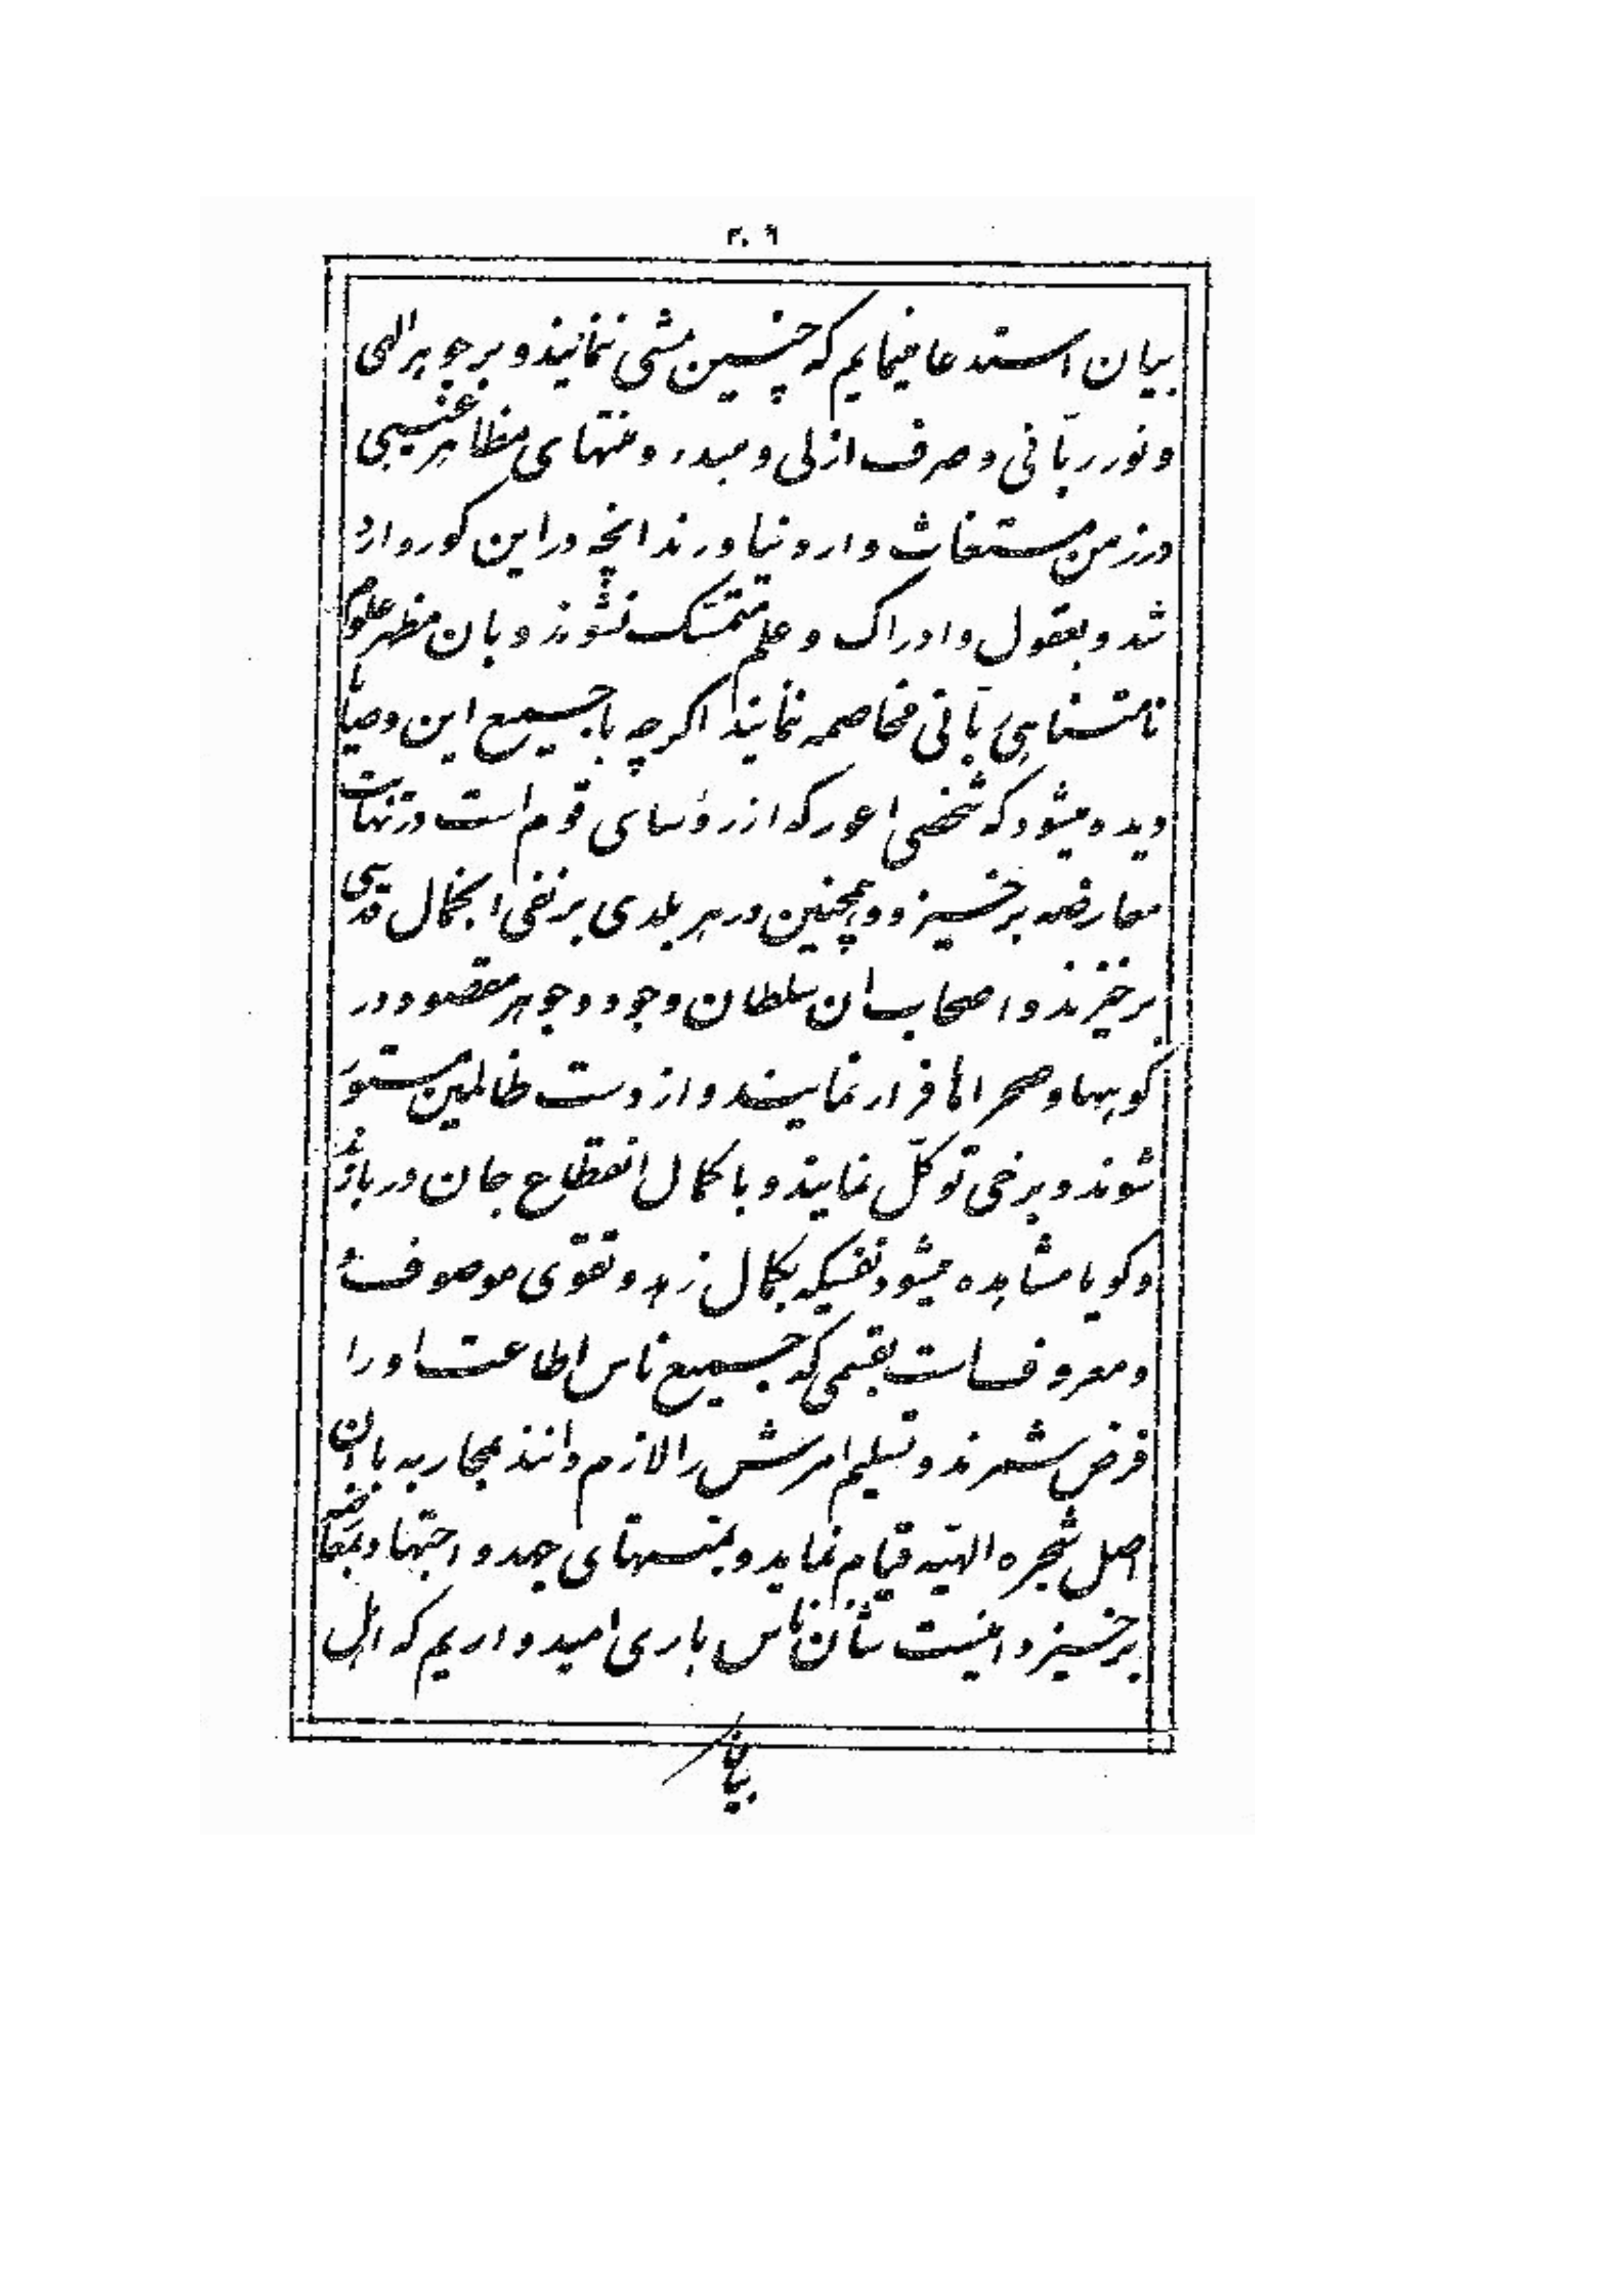 ۲۰۶
بیان استدعا مینمایم که چنین مشی ننمایند و بر جوهر الهی
و نور ربّانی و صرف ازلی و مبدء و منتهای مظاهر غیبی
در زمن مستغاث وارد نیاورند انچه در این کور وارد
شد و بعقول و ادراک و علم متمسّک نشوند و بان مظهر علوم
نامتناهی ربّانی مخاصمه ننمایند اکرچه با جمیع این وصایا
دیده میشود که شخصی اعور که از رؤسای قوم است در نهایت
معارضه برخیزد و همچنین در هر بلدی بر نفی انجمال قدسی
برخیزند و اصحاب ان سلطان وجود و جوهر مقصود در
کوهها و صحراها فرار نمایند و از دست ظالمین مستور
شوند و برخی توکّل نمایند و با کمال انقطاع جان در بازند
و کویا مشاهده میشود نفسیکه بکمال زهد و تقوی موصوف است
و معروفست بقسمی که جمیع ناس اطاعت او را
فرض شمرند و تسلیم امرش را لازم دانند بمحاربه با ان
اصل شجره الهیّه قیام نماید و بمنتهای جهد و اجتهاد بمعارضه
برخیزد اینست شأن ناس باری امیدواریم که اهل
بیان